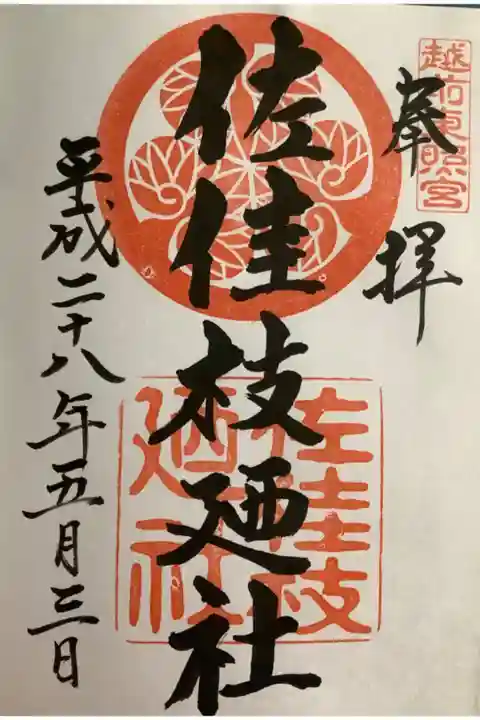 越前東照宮
奉拝
佐佳枝廼社
佐佳枝
廼社
平成二十八年五月三日